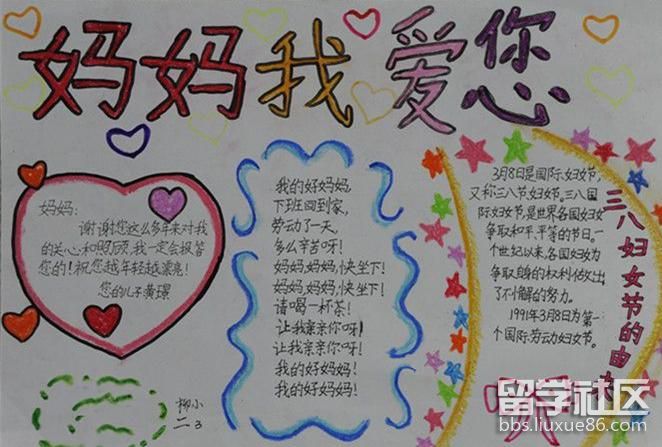 妈妈我爱您
妈妈:
谢谢您这么多年来对我
的关心和照顾,我一定会报答
您的!祝您越年轻越漂亮!
您的儿子黄璟
我的好妈妈,
下班回到家,
劳动了一天,
多么辛苦呀!
妈妈,妈妈,快坐下!
妈妈,妈妈,快坐下!
请喝一杯茶!
让我亲亲你呀!
让我亲亲你呀!
我的好妈妈!
我的好妈妈!
3月8日是国际妇女节,
又称三八节,妇女节。三八国
际妇女节,是世界各国妇女
争取和平、平等的节日。一
个世纪以来,各国妇女为
争取自身的权利做出
了不懈的努力。
1991年3月8日为第一
个国际劳动妇女节。
三八妇女节的由来
柳小
二3
留学社区
bbs.liuxue86.com